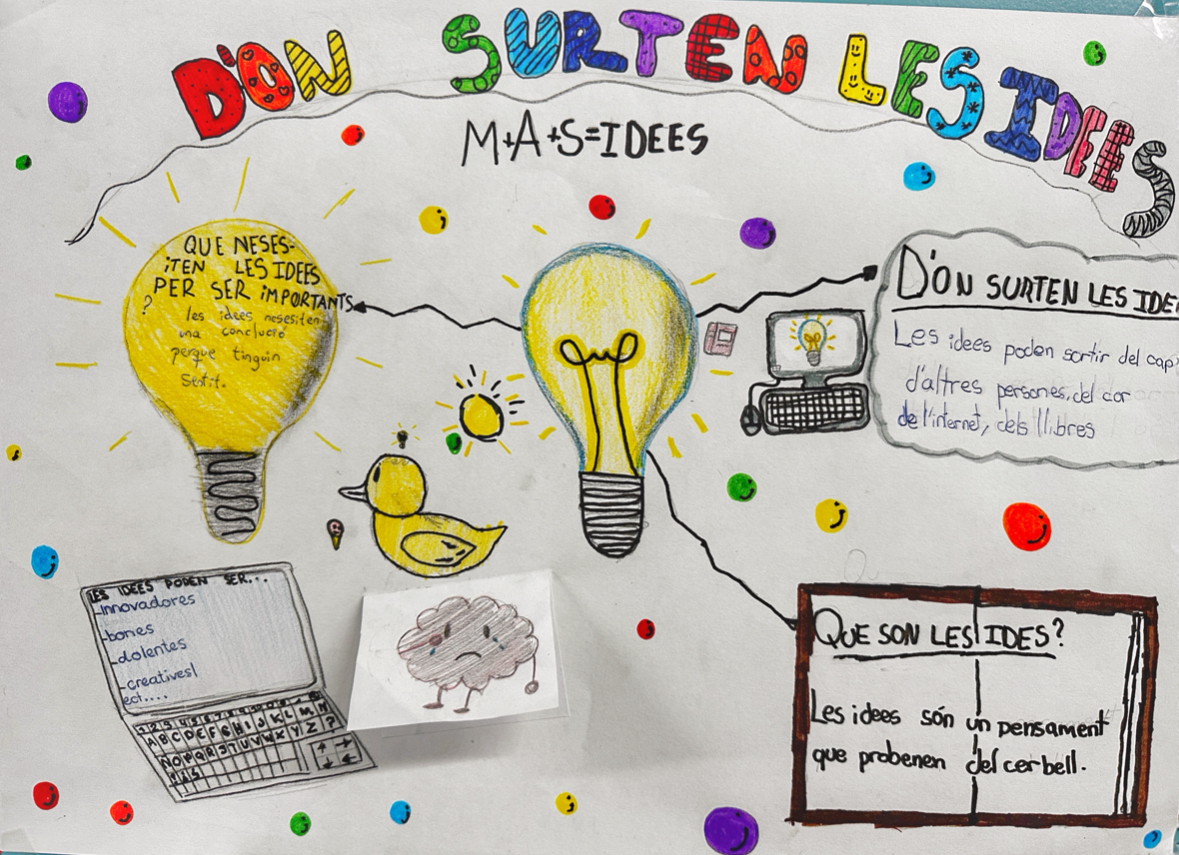 D'ON SURTEN LES IDEES
M+A+S=IDEES
QUE NESES-
iTEN LES IDEES
PER SER iMPORTANTS
?
les idees nesesiten
una conclució
perque tinguin
Sentit.
D'ON SURTEN LES IDEE
Les idees poden sortir del cap,
d'altres persones, del cor
de l'internet, dels llibres
LES IDEES PODEN SER...
-innovadores
-bones
-dolentes
-creatives
ect....
1 2 3 4 5 6 7 8 9 10
A B C D E F G H I J K L M N
N O P Q R S T U V W X Y Z ?
QUE SON LES IDES?
Les idees són un pensament
que probenen del cerbell.